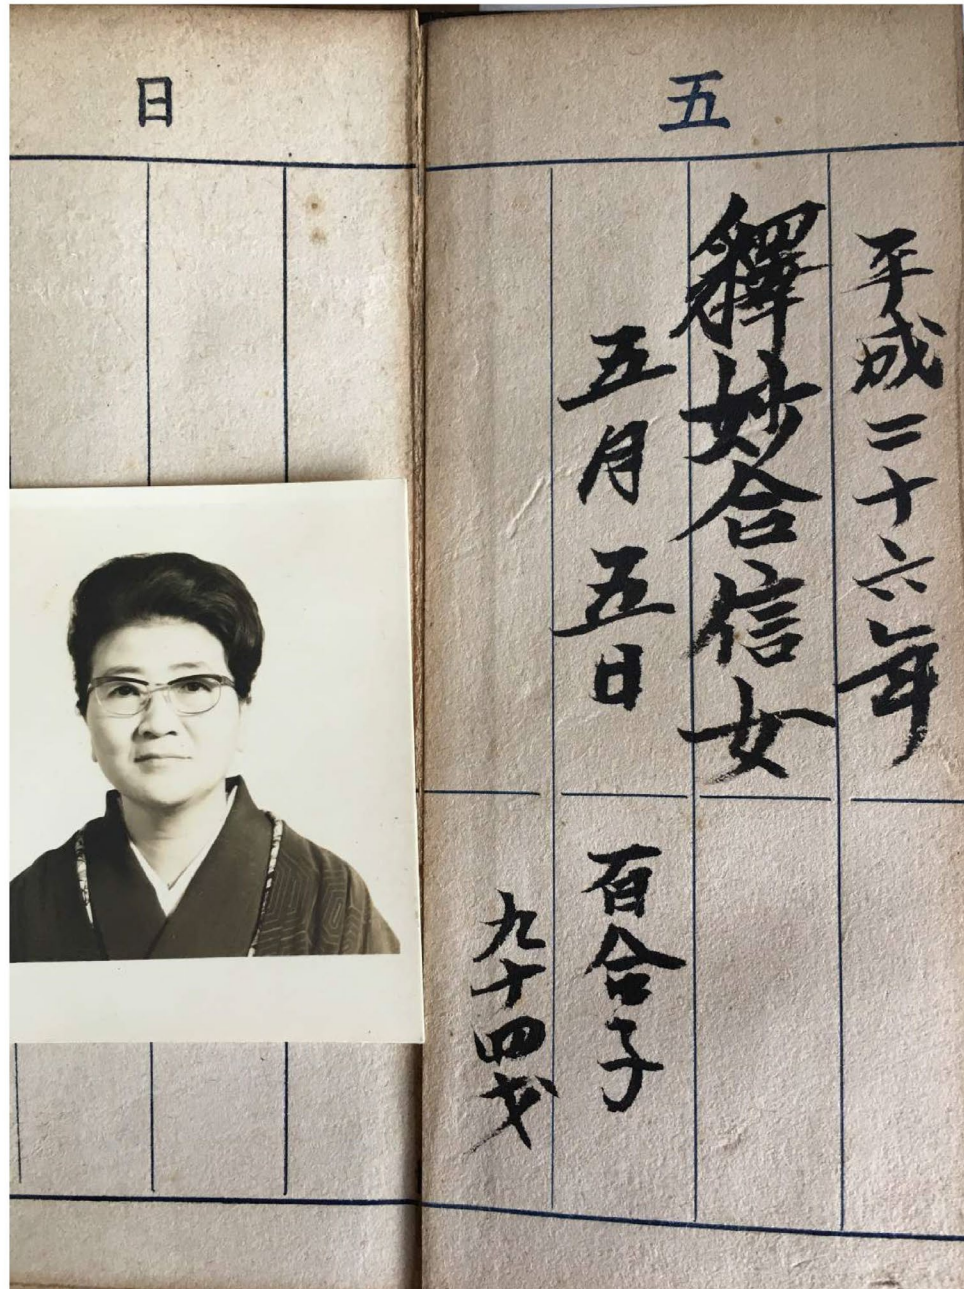 五
日
平成二十六年
釋妙合信女
五月五日
百合子
九十四才